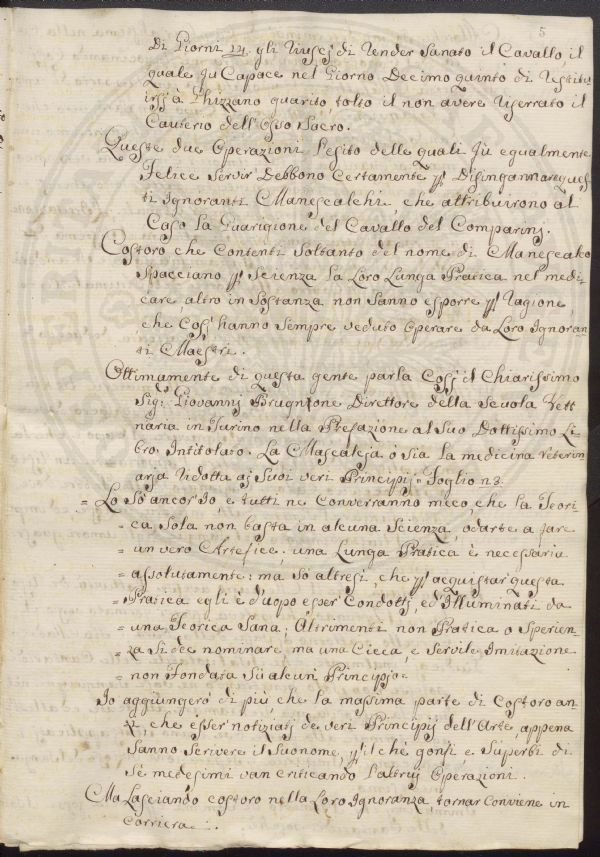 5
Di Giorni 14. gli riuscj di render Sanato il Cavallo il
quale fu Capace nel Giorno Decimo quinto di restitu-
irsj à Ghizzano guarito, tolto il non avere riserrato il
Cauterio dell'Osso Sacro.
Queste due Operazioni l'esito delle quali fù egualmente
Felice servir Debbono Certamente p Disingannare ques-
ti Ignoranti Manescalchi, che attribuirono al
Caso la Guarigione del Cavallo del Comparinj.
Costoro che Contenti Soltanto del nome di Manescalco
Spacciano p Scienza la Loro Lunga Pratica nel medi-
care, altro in Sostanza non Sanno esporre p Ragione,
che Così hanno Sempre veduto Operare da Loro Ignoran-
ti Maestri.
Ottimamente di questa gente parla Così il Chiarissimo
Sig.r Giovannj Brugnone Direttore della Scuola Vett
naria in Turino nella Prefazione al Suo Dottissimo Li-
bro Intitolato. La Mascalcja ò sia la medicina veterin-
arja ridotta aj Suoi veri Principij = Foglio n3.
= Lo Sò ancor Io, e tutti ne Converranno meco, che la Teori-
= ca Sola non basta in alcuna Scienza, od arte a fare
= un vero Artefice: una Lunga Pratica è necessaria
= assolutamente: ma, Sò altresì, che p acquistar questa
= Pratica egli è d'uopo esser Condottj, ed Illuminati da
= una Teorica Sana; Altrimenti non Pratica o Sperien-
= za Si de nominare, ma una Cieca, e Servile Imitazione
= non Fondata Sù alcun Principjo =
Io aggiungerò di più, che la massima parte di Costoro an-
zi, che esser notiziatj de veri Principij dell'Arte, appena
Sanno Scrivere il Suo nome, p il chè gonfi, e Superbi di
Sè medesimi van criticando l'altruj Operazioni.
Ma Lasciando costoro nella Loro Ignoranza, tornar Conviene in
Carriera.